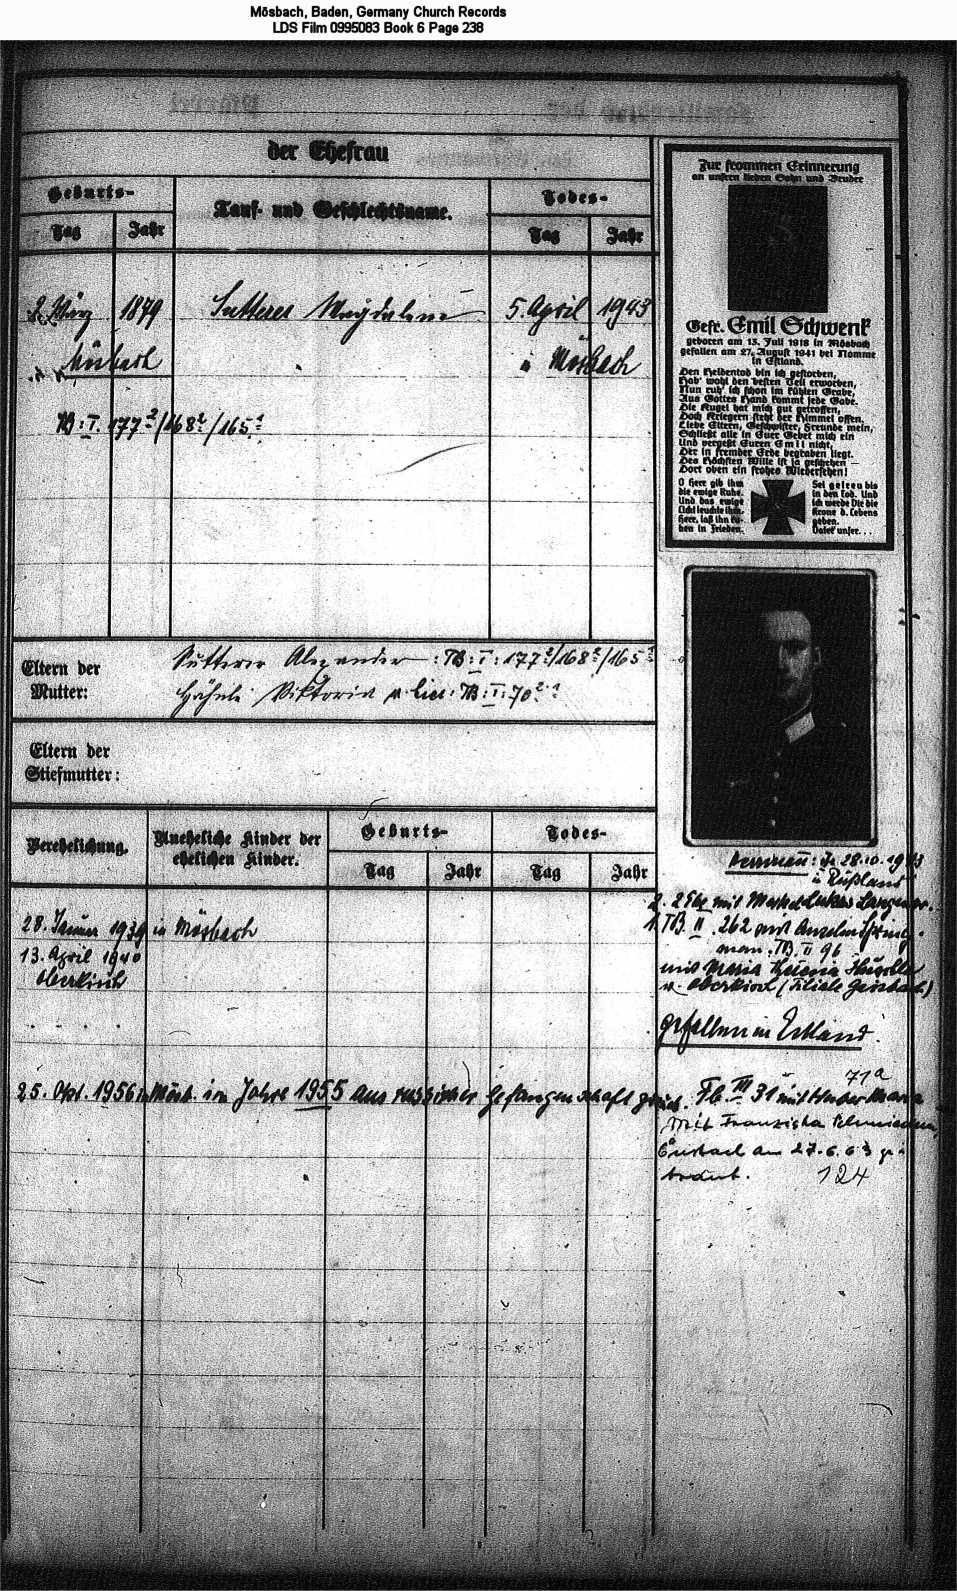 Mösbach, Baden, Germany Church Records
LDS Film 0995083 Book 6 Page 238
der Ehefrau
Geburts-
Tag
Jahr
Tauf- und Geschlechtsname.
Todes-
Tag
Jahr
2. März 1879 Sutterer Magdalena 5. April 1943
Mösbach
in Mösbach
TB: I. 177²/168²/165²
Eltern der
Mutter:
Sutterer Alexander: TB: I: 177²/168²/165²
Viktoria TB: I: 70²
Eltern der
Stiefmutter:
Verehelichung.
Uneheliche Kinder der
ehelichen Kinder.
Geburts-
Tag
Jahr
Todes-
Tag
Jahr
28. Januar 1939 in Mösbach
13. April 1940
Oberkirch
25. Okt. 1956 in Mösb. im Jahre 1955 aus russischer Gefangenschaft zurück.
Zur frommen Erinnerung
an unsern lieben Sohn und Bruder
Gefr. Emil Schwenk
geboren am 13. Juli 1918 in Mösbach
gefallen am 27. August 1941 bei Nomme
in Estland.
Den Heldentod bin ich gestorben,
Hab' wohl den besten Teil erworben,
Nun ruh' ich schon im kühlen Grabe,
Aus Gottes Hand kommt jede Gabe.
Die Kugel hat mich gut getroffen,
Doch Kriegern steht der Himmel offen.
Liebe Eltern, Geschwister, Freunde mein,
Schließt alle in Euer Gebet mich ein
Und vergeßt Euren Emil nicht,
Der in fremder Erde begraben liegt.
Des Höchsten Wille ist ja geschehen —
Dort oben ein frohes Wiedersehen!
O Herr gib ihm
die ewige Ruhe.
Und das ewige
Licht leuchte ihm.
Herr, laß ihn ru-
hen in Frieden.
Sei getreu bis
in den Tod. Und
ich werde Dir die
Krone d. Lebens
geben.
Vater unser...
28.10.1943
in Rußland
2. Ehe mit Lukas
1. TB. II. 262 mit Anselm
TB. II 96
mit Maria
v. Oberkirch (Filiale
gefallen in Estland.
71a
Tb. III 31 mit Huber Maria
Mit Franziska
am 27.6.63
124